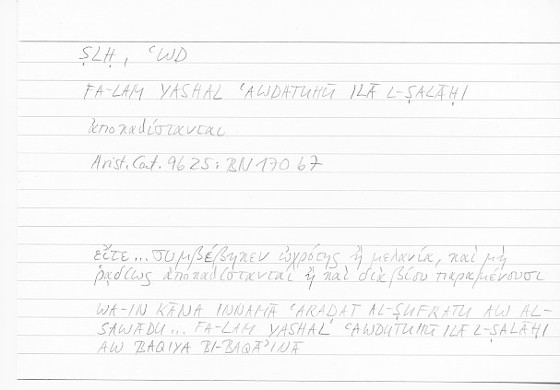 ṢLḤ, ʿWD
FA-LAM YASHAL ʿAWDATUHŪ ILĀ L-ṢALĀḤI
ἀποκαθίστανται
Arist. Cat. 9b25: BN 170b7
εἴτε... συμβέβηκεν ὠχρότης ἢ μελανία, καὶ μὴ
ῥᾳδίως ἀποκαθίστανται ἢ καὶ διὰ βίου παραμένουσι
WA-IN KĀNA INNAMĀ ʿARAḌAT AL-ṢUFRATU AW AL-
SAWĀDU... FA-LAM YASHAL ʿAWDUTUHŪ ILĀ L-ṢALĀḤI
AW BAQIYA BI-BAQĀʾINĀ